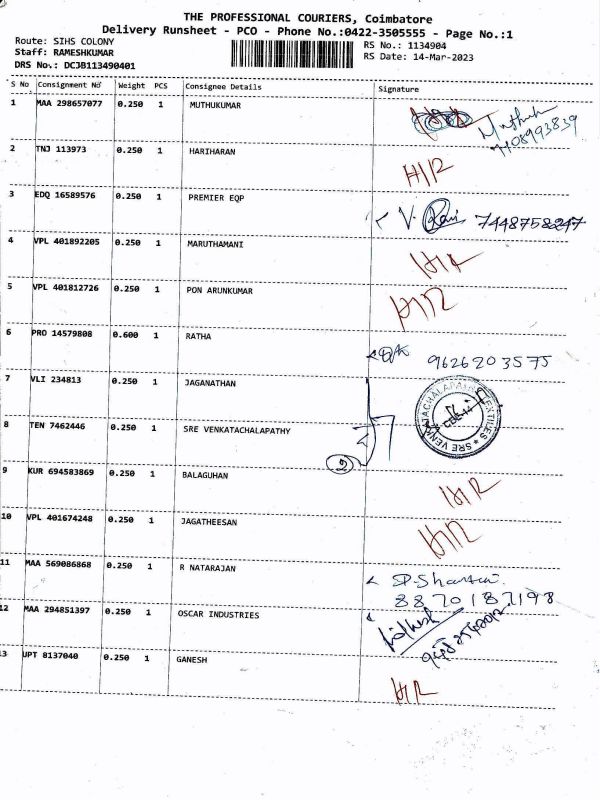 THE PROFESSIONAL COURIERS, Coimbatore
Delivery Runsheet - PCO - Phone No.:0422-3505555 - Page No.:1
Route: SIHS COLONY
RS No.: 1134904
Staff: RAMESHKUMAR
RS Date: 14-Mar-2023
DRS No.: DCJB113490401
S No Consignment No Weight PCS Consignee Details Signature
1 MAA 298657077 0.250 1 MUTHUKUMAR
2 TNJ 113973 0.250 1 HARIHARAN H/R
3 EDQ 16589576 0.250 1 PREMIER EQP V. Ravi 7448758247
4 VPL 401892205 0.250 1 MARUTHAMANI H/R
5 VPL 401812726 0.250 1 PON ARUNKUMAR H/R
6 PRO 14579808 0.600 1 RATHA 9626203575
7 VLI 234813 0.250 1 JAGANATHAN
8 TEN 7462446 0.250 1 SRE VENKATACHALAPATHY
SRE VENKATACHALAPATHI TEXTILES
9 KUR 694583869 0.250 1 BALAGUHAN H/R
10 VPL 401674248 0.250 1 JAGATHEESAN H/R
11 MAA 569086868 0.250 1 R NATARAJAN
8870187198
12 MAA 294851397 0.250 1 OSCAR INDUSTRIES
13 UPT 8137040 0.250 1 GANESH H/R